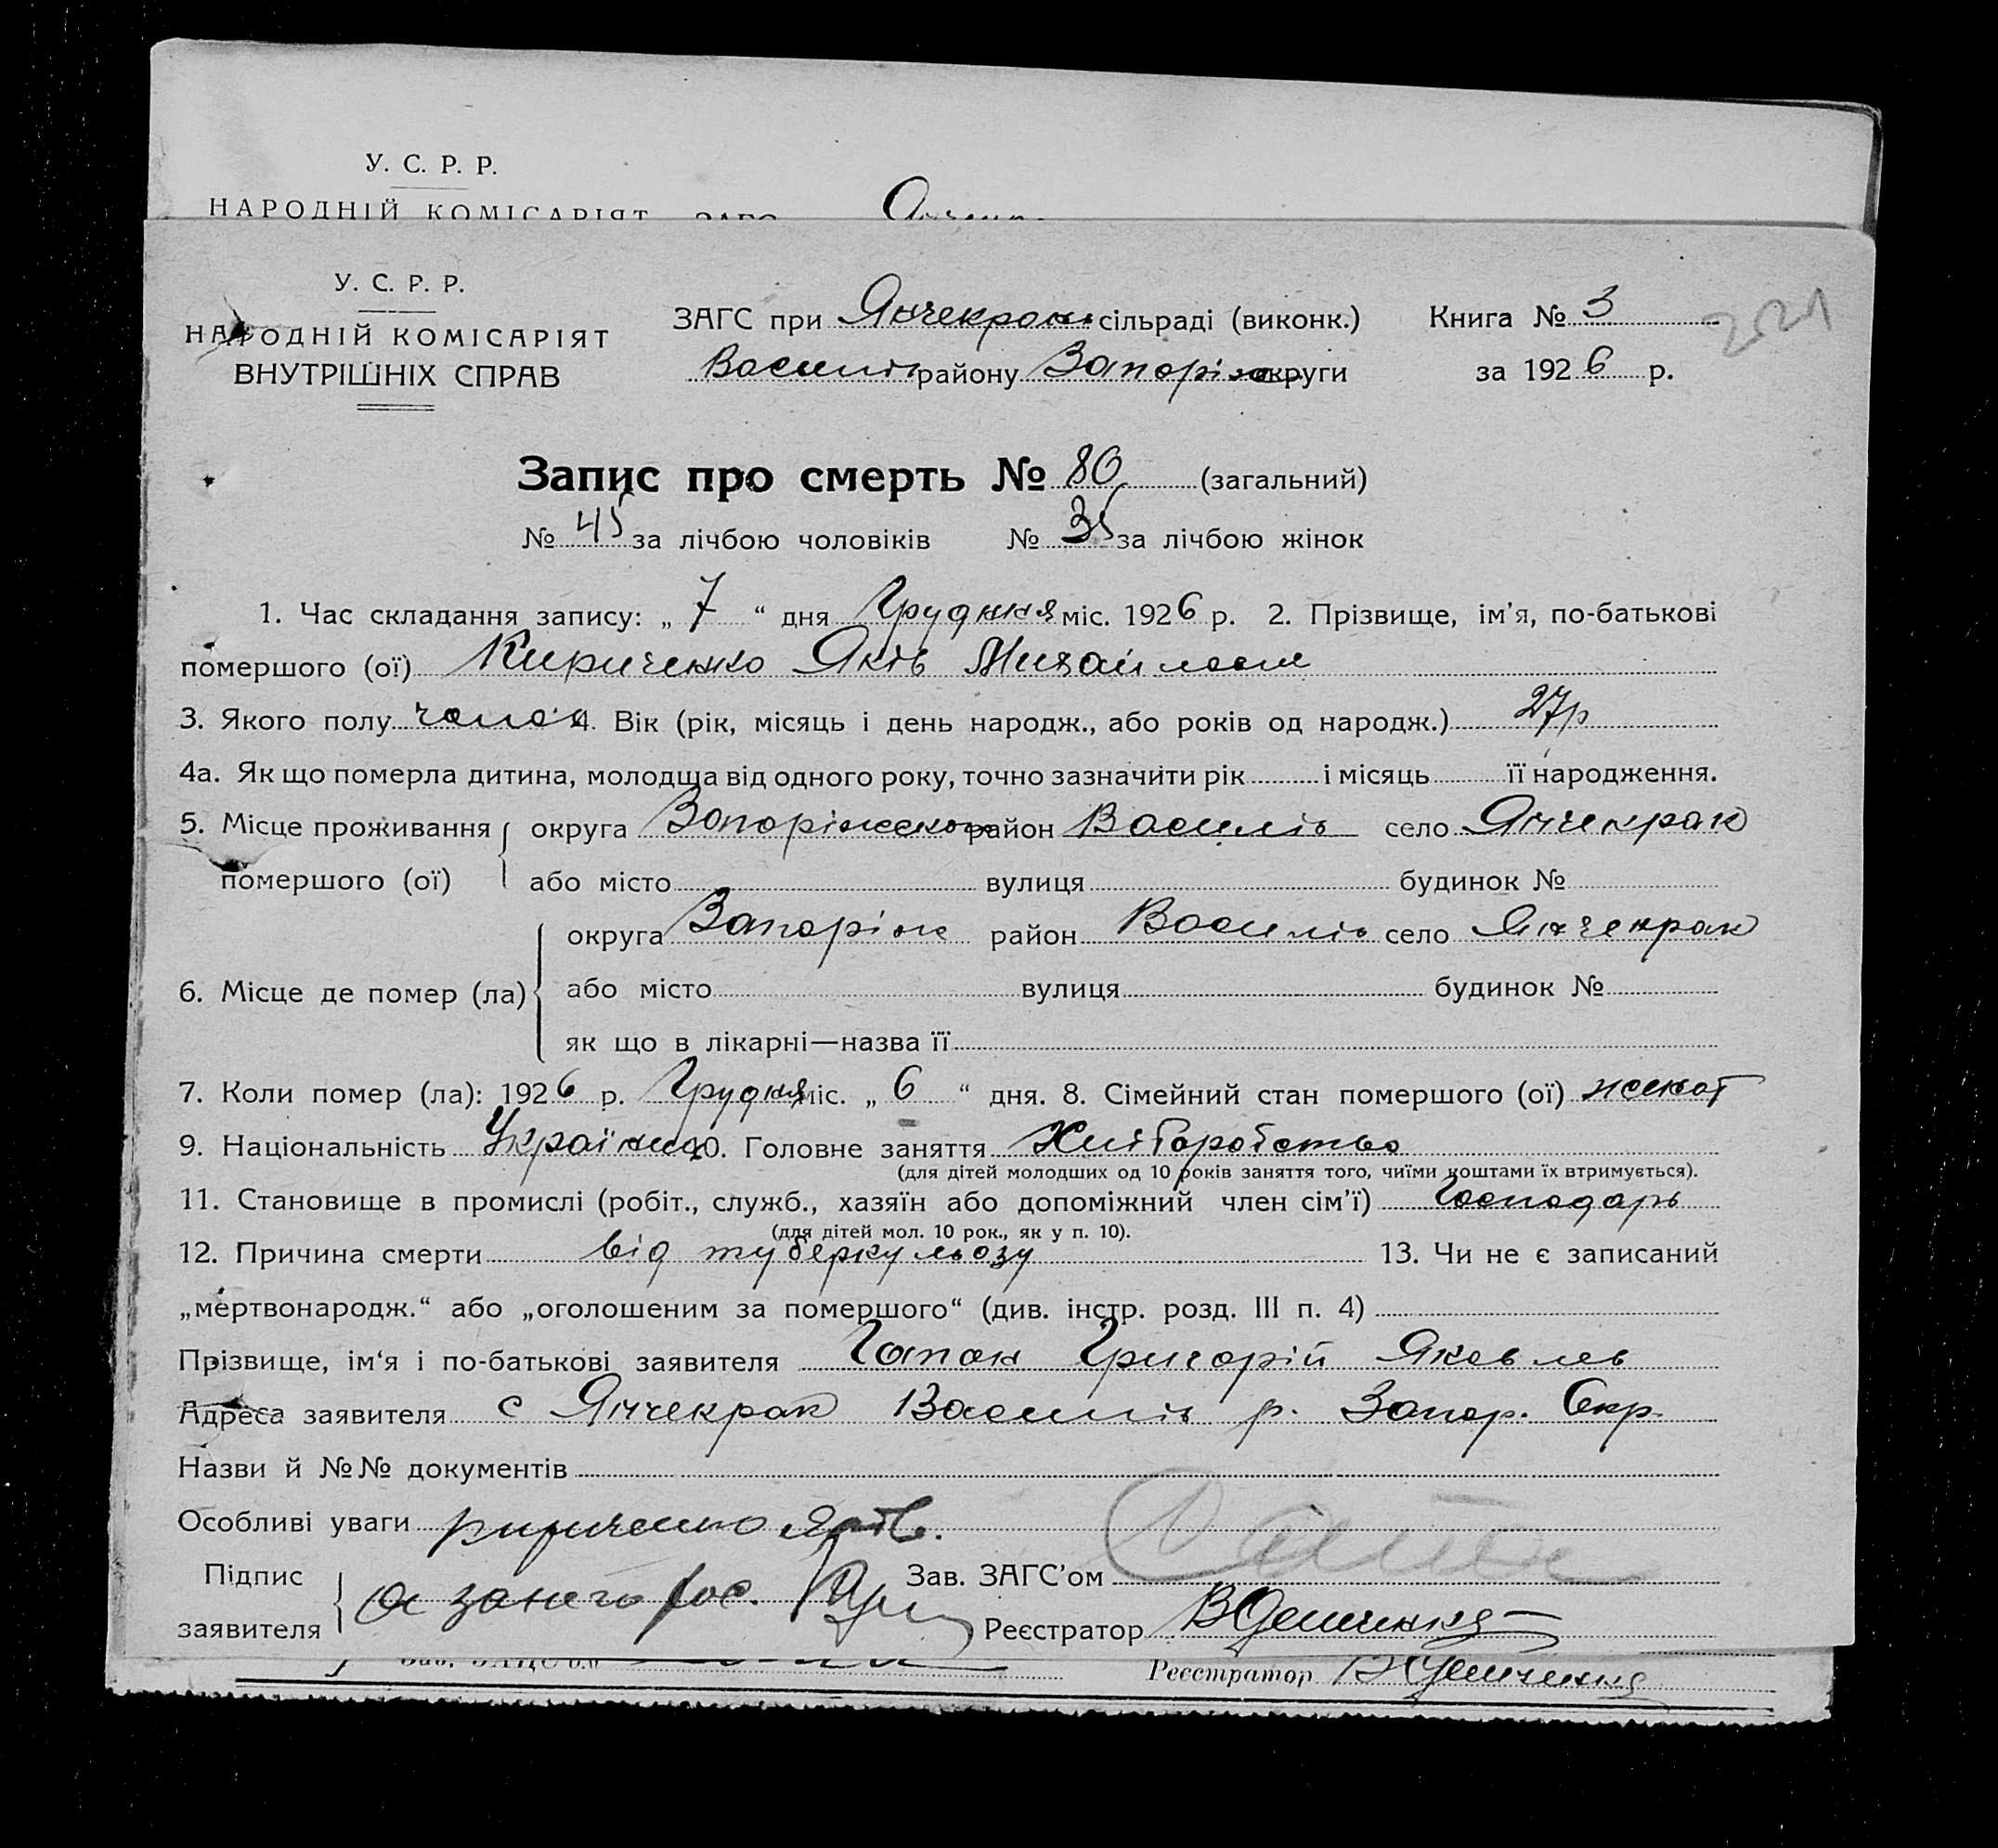 У. С. Р. Р.
НАРОДНІЙ КОМІСАРІЯТ ЗАГС
У. С. Р. Р.
НАРОДНІЙ КОМІСАРІЯТ
ВНУТРІШНІХ СПРАВ
ЗАГС при Янчекракськ сільраді (виконк.) Книга № 3
221
Василів району Запоріж округи за 1926 р.
Запис про смерть № 80 (загальний)
№ 45 за лічбою чоловіків № 35 за лічбою жінок
1. Час складання запису: „ 7 “ дня Грудння міс. 1926 р. 2. Прізвище, ім'я, по-батькові
помершого (ої) Кириченко Яків Михайлов
3. Якого полу чолов 4. Вік (рік, місяць і день народж., або років од народж.) 27р
4а. Як що померла дитина, молодща від одного року, точно зазначити рік і місяць її народження.
5. Місце проживання округа Запоріжська район Василів село Янчекрак
помершого (ої) або місто вулиця будинок №
округа Запоріж район Василів село Янчекрак
6. Місце де помер (ла) або місто вулиця будинок №
як що в лікарні—назва її
7. Коли помер (ла): 1926 р. Грудня міс. „ 6 “ дня. 8. Сімейний стан помершого (ої) жонат
9. Національність Українец 10. Головне заняття Хліборобство
(для дітей молодших од 10 років заняття того, чиїми коштами їх втримується).
11. Становище в промислі (робіт., служб., хазяїн або допоміжний член сім'ї) Господарь
(для дітей мол. 10 рок., як у п. 10).
12. Причина смерти від туберкульозу 13. Чи не є записаний
„мертвонародж.“ або „оголошеним за помершого“ (див. інстр. розд. III п. 4)
Прізвище, ім'я і по-батькові заявителя Гапон Григорій Яковлев
Адреса заявителя с Янчекрак Василів р. Запор. Окр.
Назви й №№ документів
Особливі уваги
Підпис
заявителя а за него рос.
Зав. ЗАГС'ом
Реєстратор В Демченко
Реєстратор В Демченко